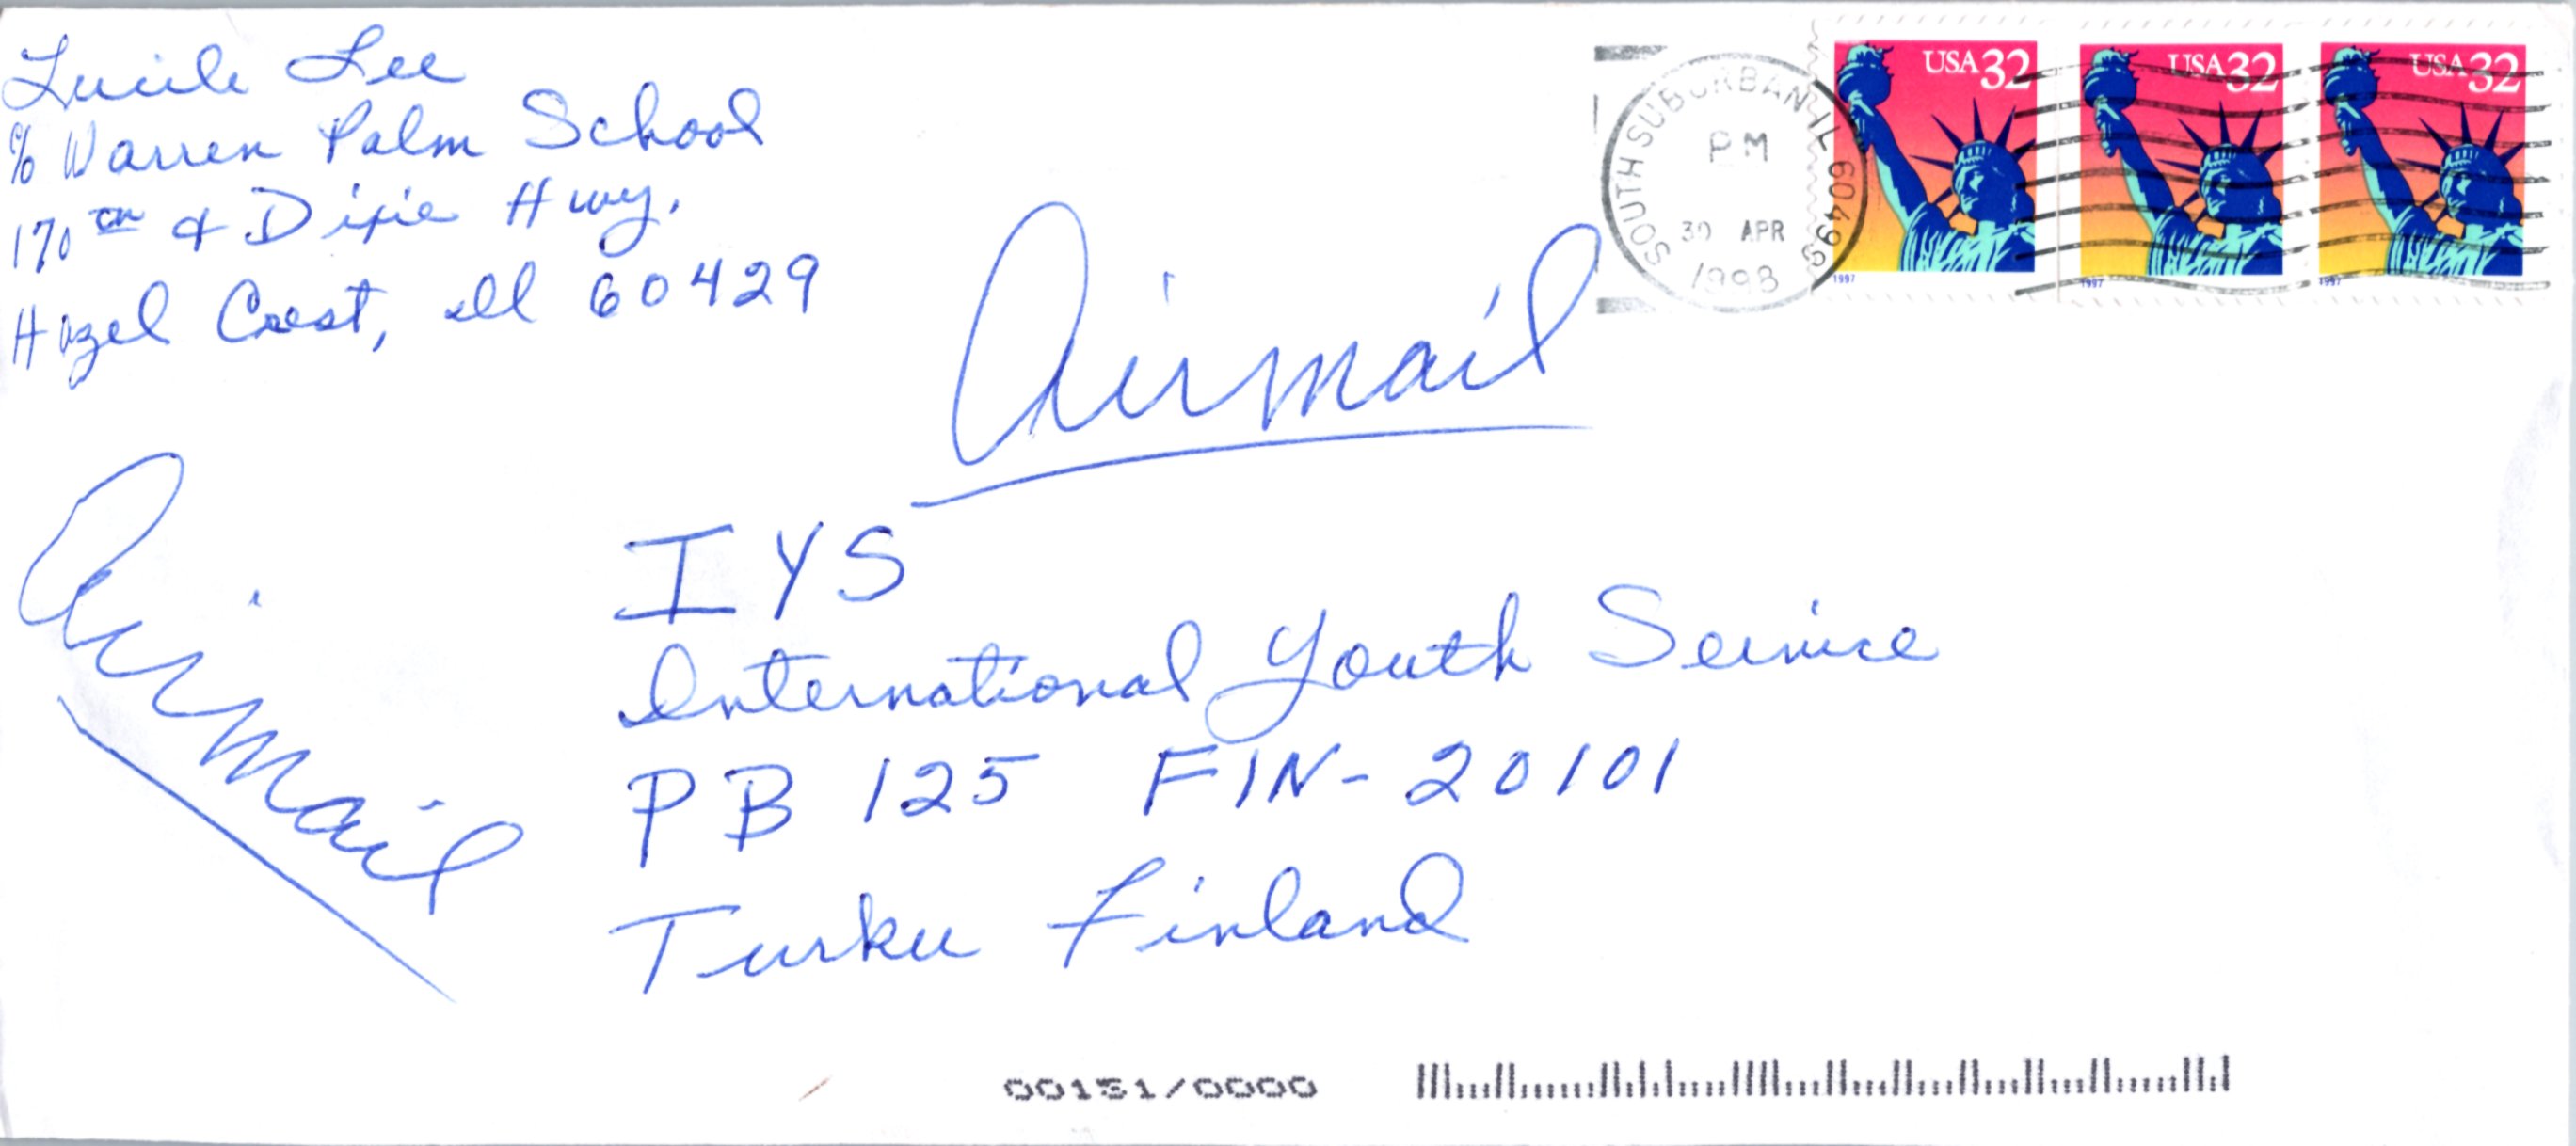 Lucile Lee
℅ Warren Palm School
170th & Dixie Hwy.
Hazel Crest, Ill 60429
SOUTH SUBURBAN IL 60499
PM
30 APR
1998
USA 32
1997
USA 32
1997
USA 32
1997
Airmail
Airmail
IYS
International Youth Service
PB 125 FIN-20101
Turku Finland
00131/0000